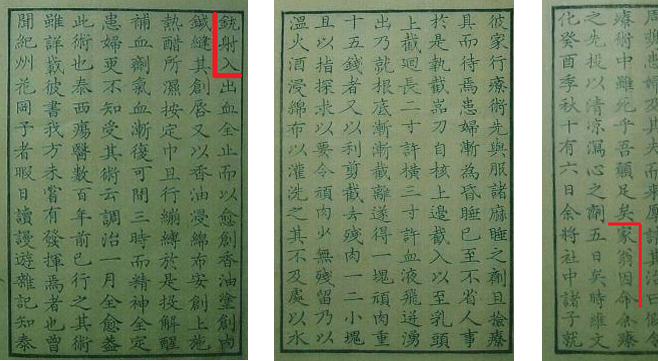 周與患婦及其夫而來厚請其治曰假令
療術中雖死乎吾願足矣家翁因命余療
之先投以清涼瀉心之劑五日矣時維文
化癸酉季秋十有六日余將社中諸子就
彼家行療術先與服諸麻睡之劑且撿療
具而待焉患婦漸為昏睡已至不省人事
於是執截刀自核上邊截入以至乳頭
上截迴長二寸許橫三寸許血液飛迸湧
出乃就根底漸漸截離遂得一塊頑肉重
十五錢者又以利剪截去殘肉一二小塊
且以指探求以要令頑肉少無殘留乃以
溫火酒浸綿布以灌洗之其不及處以水
銃射入出血全止而以愈創香油塗創內
鍼縫其創唇又以香油浸綿布安創上施
熱醋所濕按定巾且行繃縛於是投解醒
補血劑氣血漸復可間三時而精神全定
患婦更不知受其術云調治一月全愈蓋
此術也泰西瘍醫數百年前已行之其術
雖詳載彼書我方未嘗有發揮焉者也曾
聞紀州花岡子者暇日讀漫遊雜記知泰